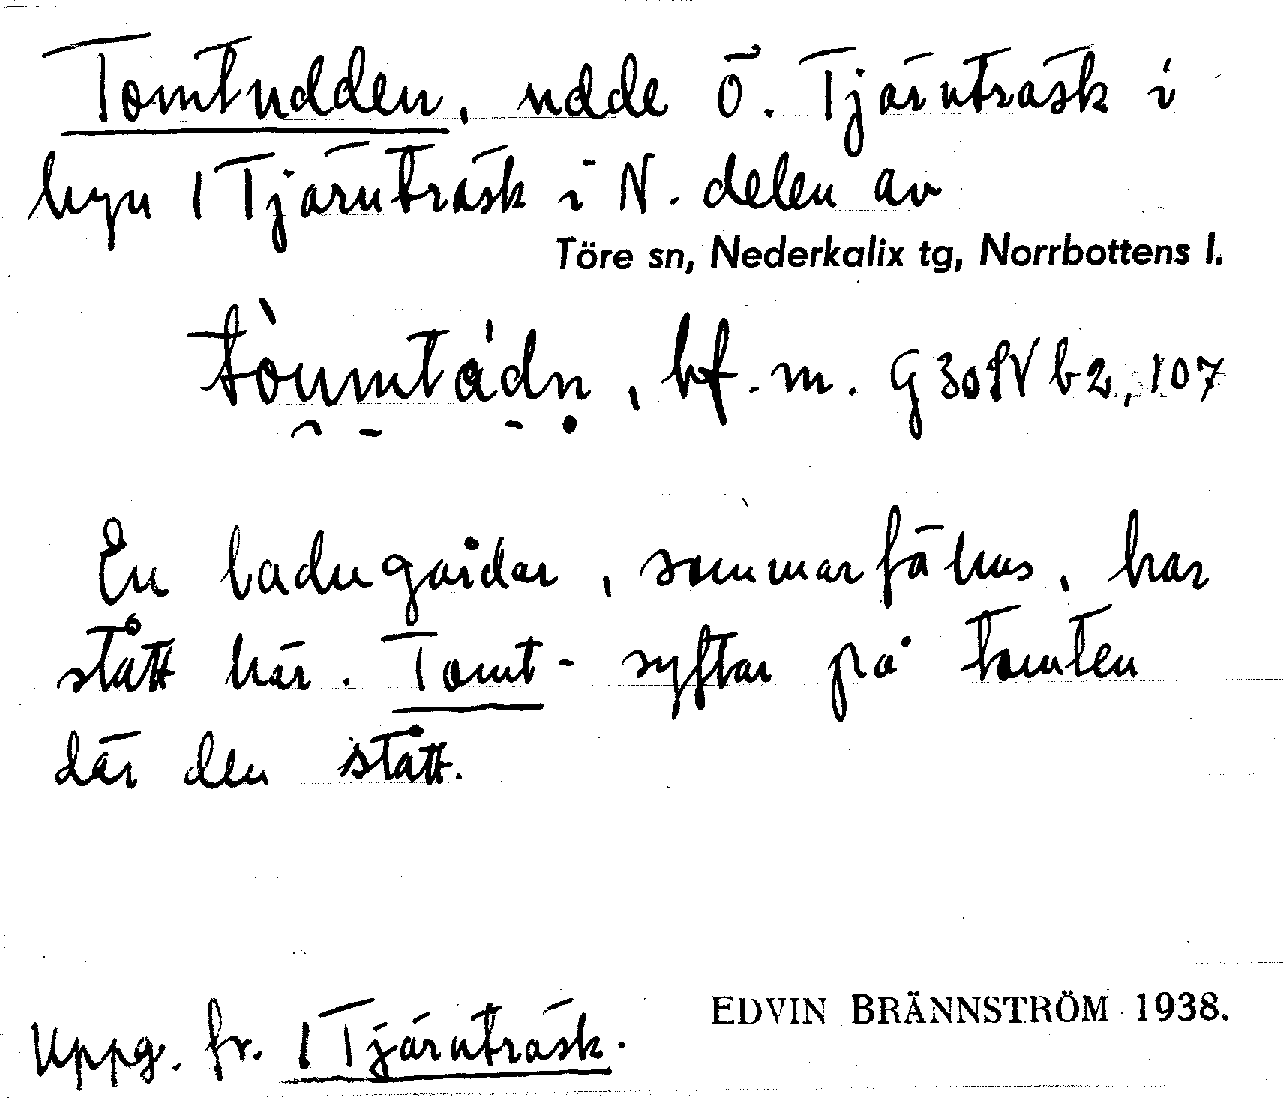 Tomtudden, udde Ö. Tjärnträsk i
byn 1 Tjärnträsk i N. delen av
Töre sn, Nederkalix tg, Norrbottens l.
bf. m. G 30 IV b2, 107
En ladugårdar, sommarfähus, har
stått här. Tomt- syftar på tomten
där den stått.
Uppg. fr. 1 Tjärnträsk.
EDVIN BRÄNNSTRÖM 1938.